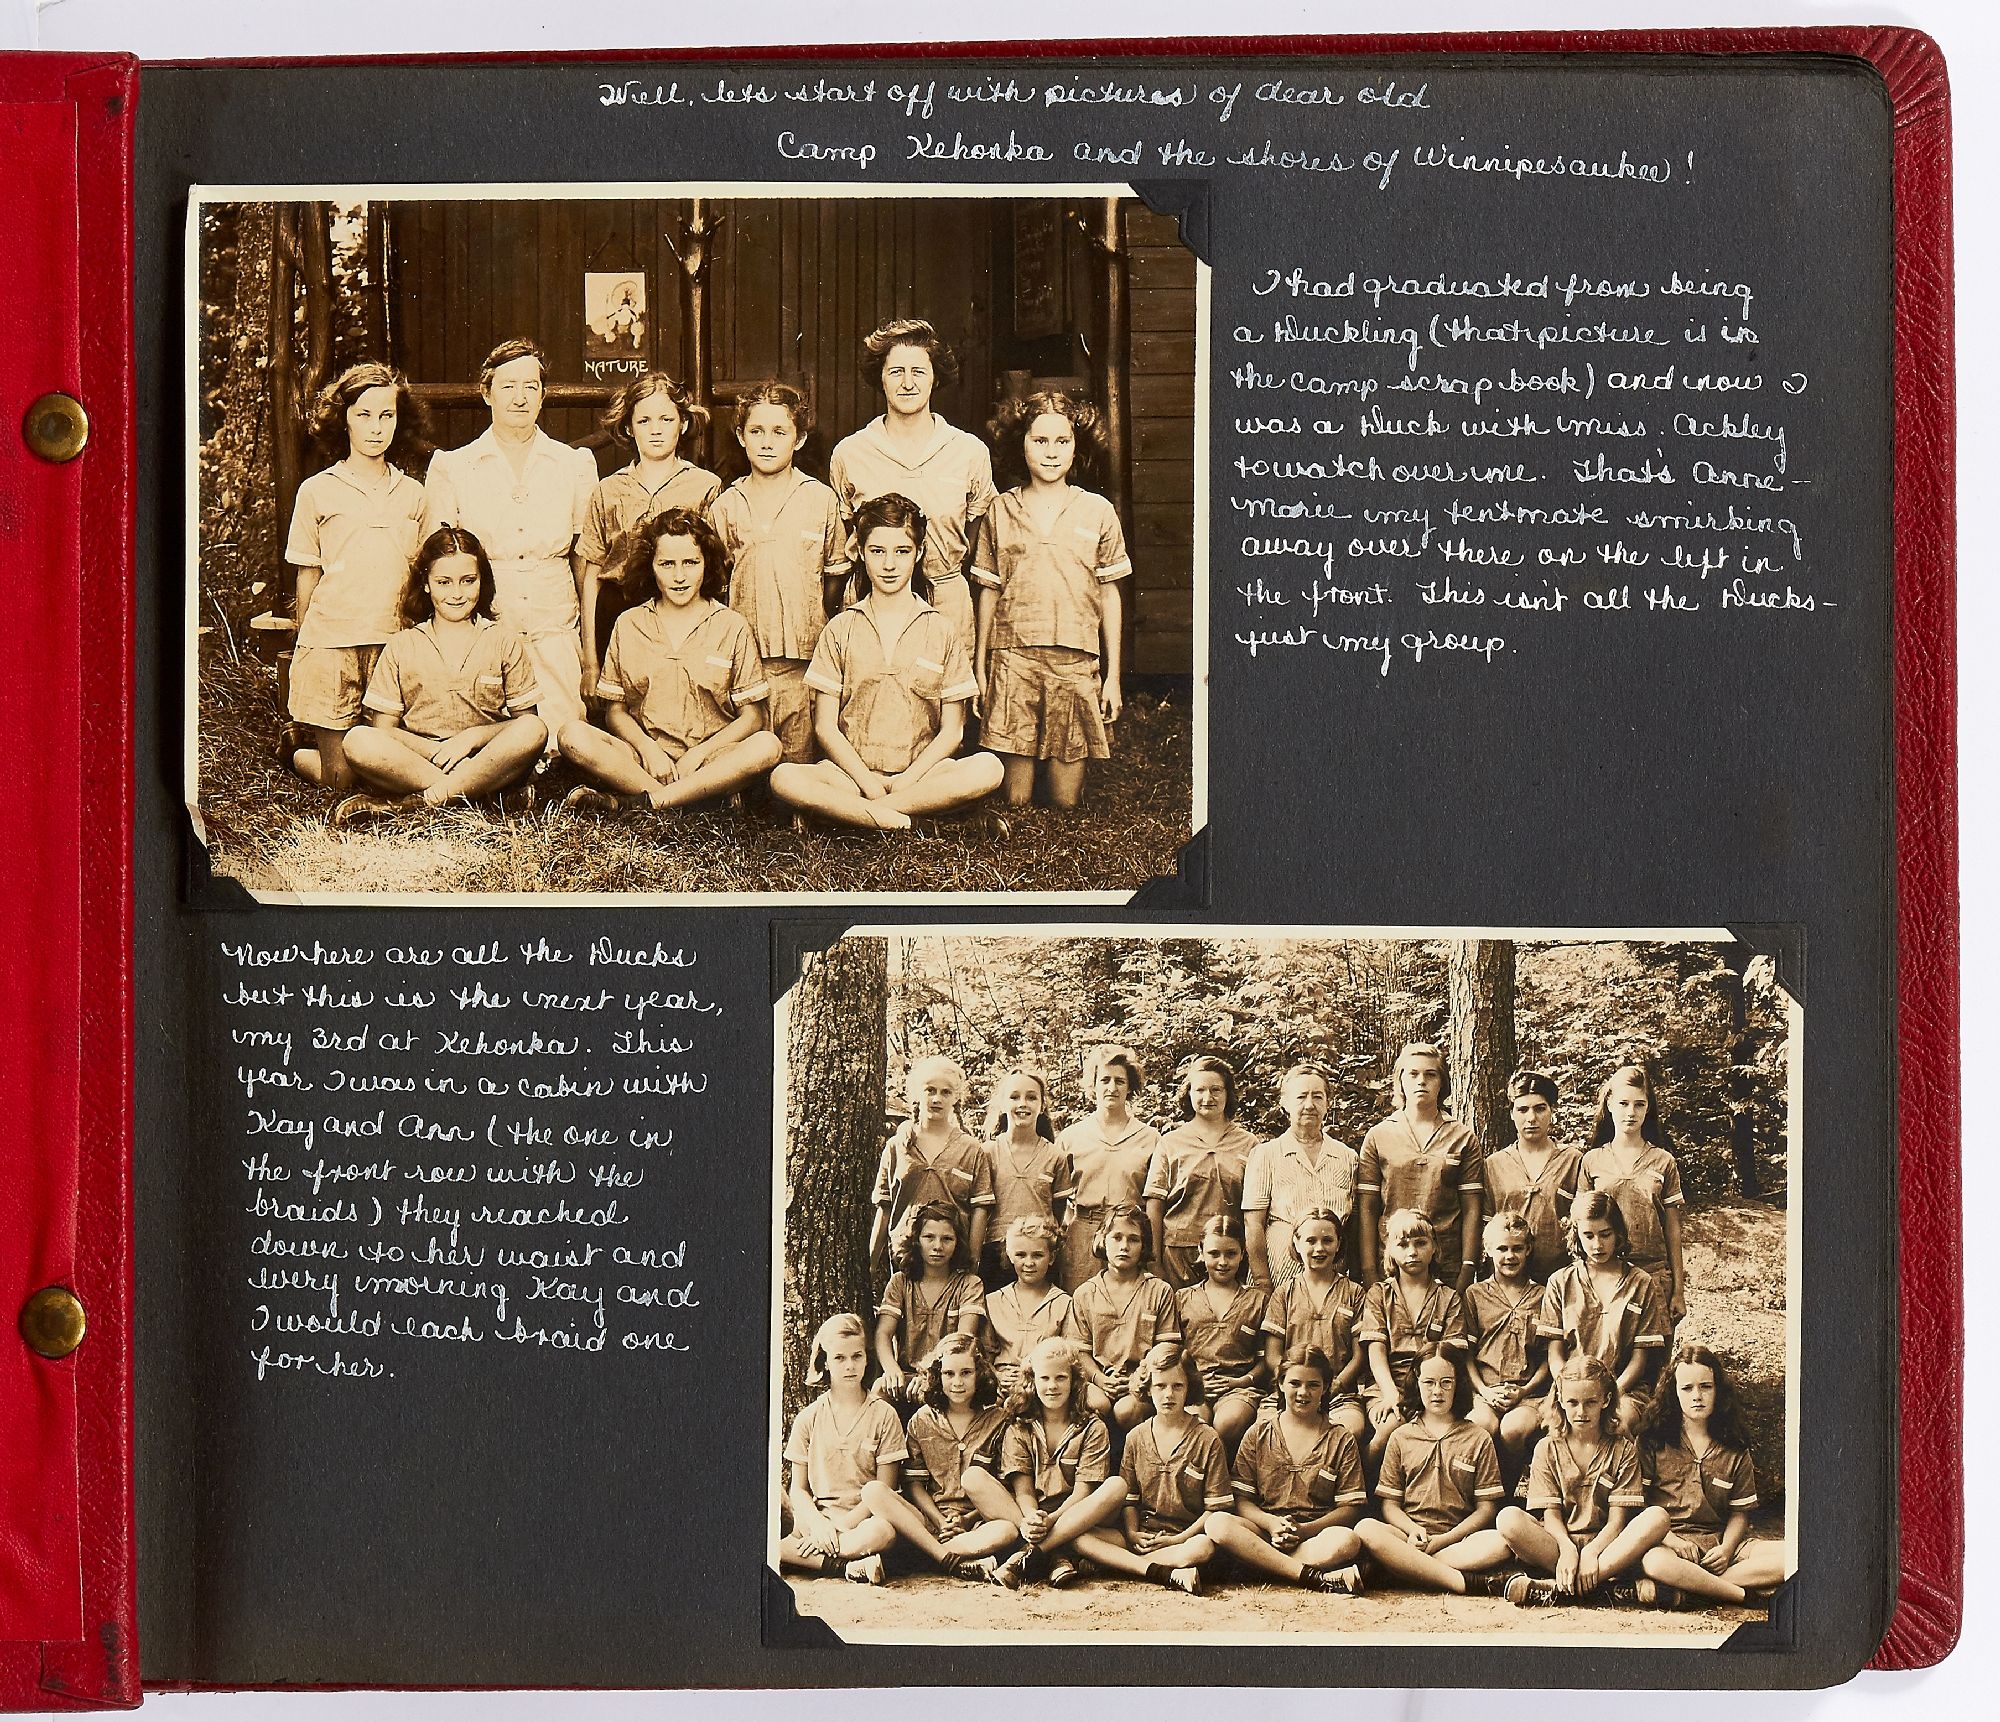 Well, lets start off with pictures of dear old
Camp Kehonka and the shores of Winnipesaukee!
NATURE
I had graduated from being
a Duckling (that picture is in
the camp scrap book) and now I
was a Duck with Miss. Ackley
to watch over me. That's Anne-
Marie my tentmate smirking
away over there on the left in
the front. This isn't all the Ducks-
just my group.
Now here are all the Ducks
but this is the next year,
my 3rd at Kehonka. This
year I was in a cabin with
Kay and Ann (the one in
the front row with the
braids) they reached
down to her waist and
every morning Kay and
I would each braid one
for her.